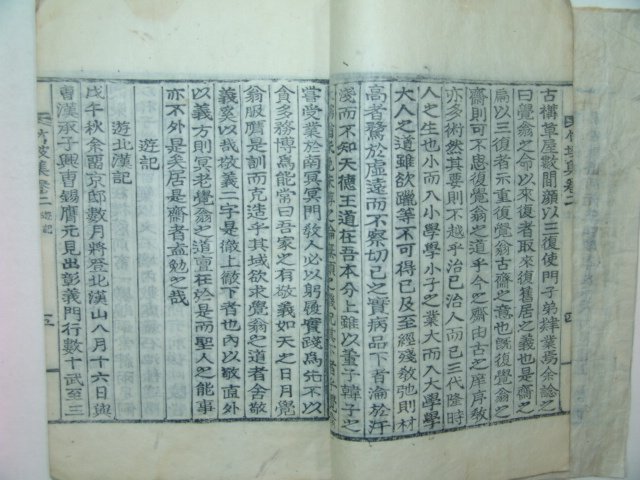 古構草屋數間顔以三復使門子弟肄業焉余諗之
曰覺翁之命以來復者取來復舊居之義也是齋之
扁以三復者示重復覺翁古齋之意也旣復覺翁之
齋則可不復覺翁之道乎今之齋由古之庠序敎
亦多術然其要則不越乎治已治人而已三代隆時
人之生也小而入小學學小子之業大而入大學學
大人之道雖欲躐等不可得已及至經殘敎弛則材
高者騖於虛遠而不察切已之實病品下者淪於汙
淺而不知天德王道在吾本分上雖以董子韓子之
嘗受業於南冥門敎人必以躬履實踐爲先不以
貪多務博爲能常曰吾家之有敬義如天之日月覺
翁服膺是訓而克造乎其域欲求覺翁之道者舍敬
義奚以哉敬義二字是徹上徹下者也內以敬直外
以義方則冥老覺翁之道亶在於是而聖人之能事
亦不外是矣居是齋者盍勉之哉
遊記
遊北漢記
戊午秋余留京邸數月將登北漢山八月十六日與
曺漢承子興曺錫膺元見出彰義門行數十武至三
集卷二 遊記